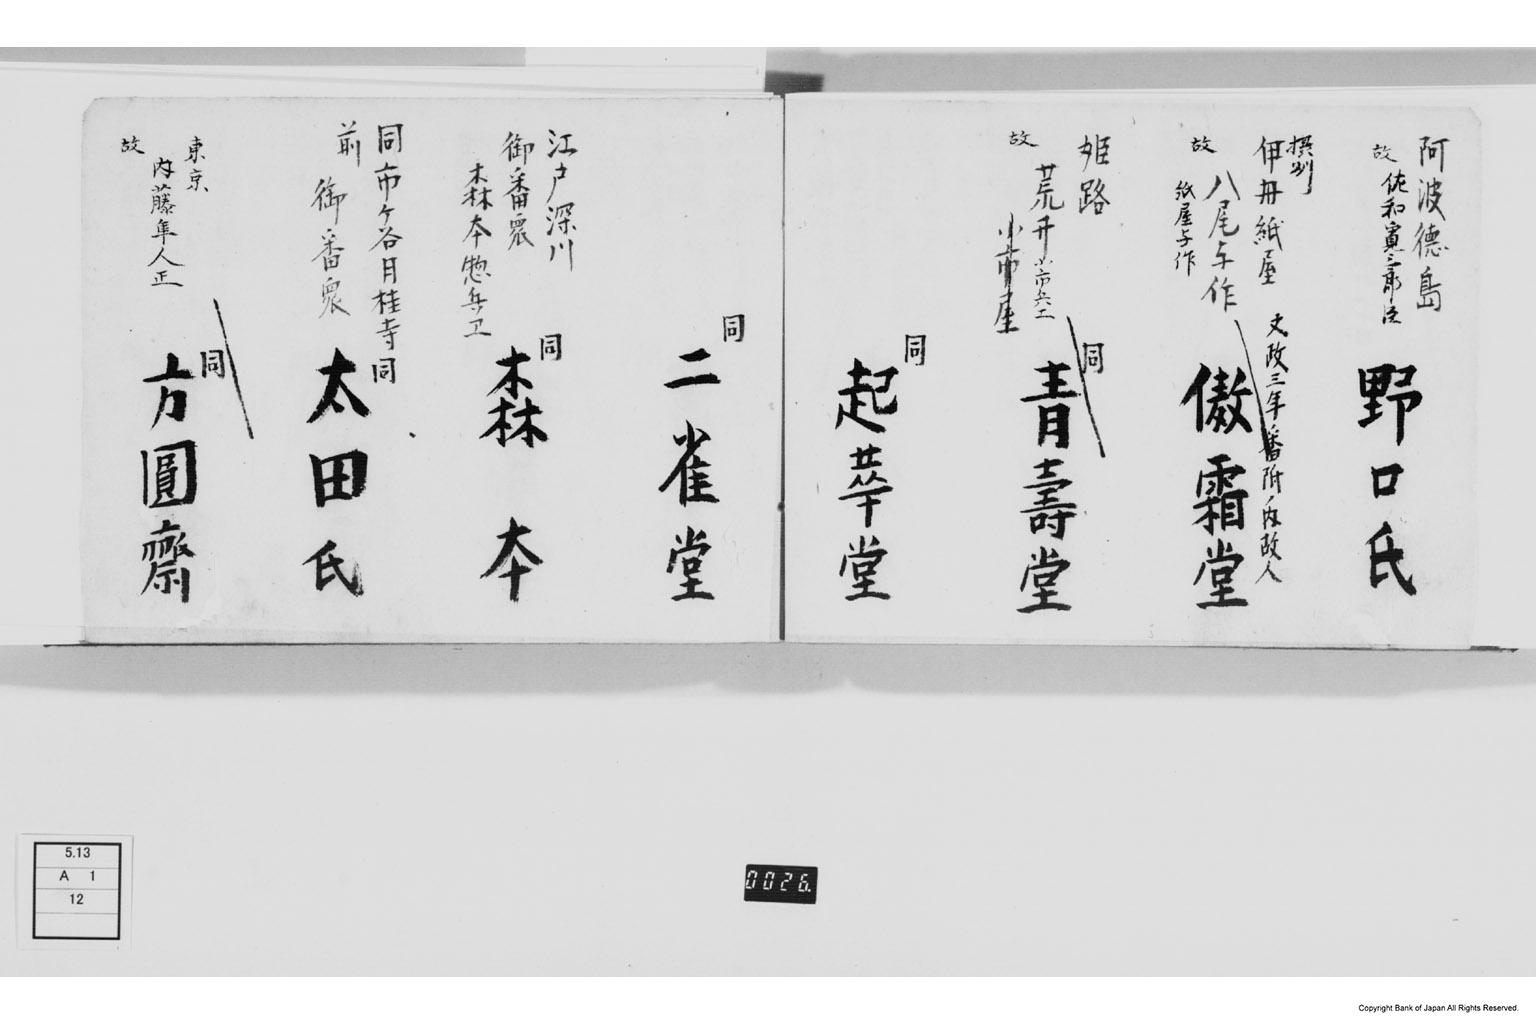 阿波徳島
故 佐和寛三郎臣
野口氏
摂州
伊丹紙屋
故 八尾与作
紙屋与作
文政三年番附ノ内故人
傲霜堂
姫路
故 荒井小市兵工
小市屋
同
青壽堂
同
起莘堂
同
二雀堂
江戸深川
御番衆
森本惣兵卫
同
森本
同市ヶ谷月桂寺
前 御番衆
同
太田氏
東京
故 内藤隼人正
同
方圓齋
5.13
A 1
12
0026.
Copyright Bank of Japan All Rights Reserved.